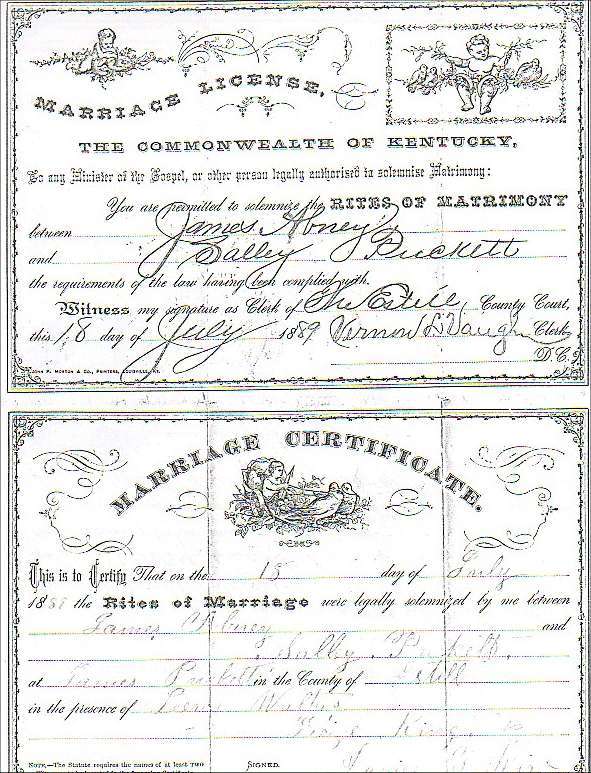 MARRIAGE LICENSE,
THE COMMONWEALTH OF KENTUCKY,
To any Minister of the Gospel, or other person legally authorised to solemnise Matrimony:
You are permitted to solemnize the RITES OF MATRIMONY
between James Abney
and Salley Puckett
the requirements of the law having been complied with.
Witness my signature as Clerk of The Estill County Court,
this 18 day of July 1889 Vernon L Vaughn Clerk
D.C.
JOHN P. MORTON & CO., PRINTERS, LOUISVILLE, KY.
MARRIAGE CERTIFICATE.
This is to Certify That on the 18 day of July
1889 the Rites of Marriage were legally solemnized by me between
James Abney and
Sally Puckett
at James Pucketts in the County of Estill
in the presence of
George King
NOTE.—The Statute requires the names of at least TWO
SIGNED.